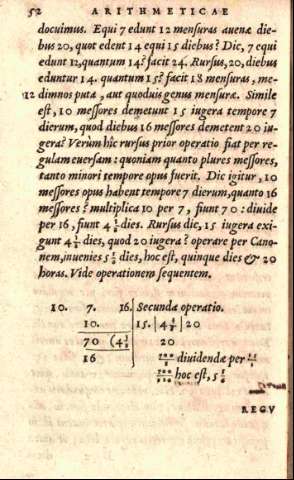 52 ARITHMETICAE
docuimus. Equi 7 edunt 12 mensuras auenæ die-
bus 20, quot edent 14 equi 15 diebus? Dic, 7 equi
edunt 12, quantum 14? facit 24. Rursus, 20, diebus
eduntur 14. quantum 15? facit 18 mensuras, me-
12 dimnos puta, aut quoduis genus mensuræ. Simile
est, 10 messores demetunt 15 iugera tempore 7
dierum, quod diebus 16 messores demetent 20 iu-
gera? Verùm hîc rursus prior operatio fiat per re-
gulam euersam: quoniam quanto plures messores,
tanto minori tempore opus fuerit. Dic igitur, 10
messores opus habent tempore 7 dierum, quanto 16
messores? multiplica 10 per 7, fiunt 70: diuide
per 16, fiunt 4 3/8 dies. Rursus dic, 15 iugera exi-
gunt 4 3/8 dies, quod 20 iugera? operare per Cano-
nem, inuenies 5 5/6 dies, hoc est, quinque dies & 20
horas. Vide operationem sequentem.
10. 7. 16. Secunda operatio.
10. 15. 4 3/8 20
70 (4 3/8 20
16 700/8 diuidendæ per 15/1
700/120 hoc est, 5 5/6
REGV